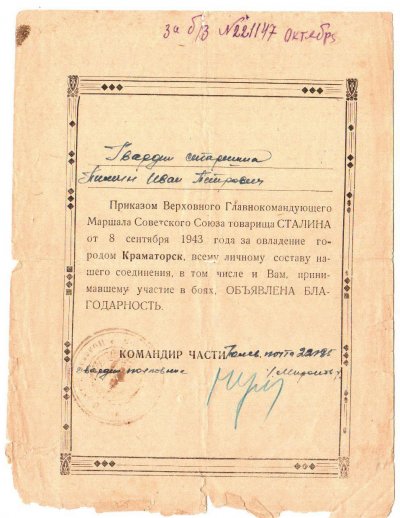 за б/з № 221147 Октябрь
Гвардии старшина
Иван Петрович
Приказом Верховного Главнокомандующего
Маршала Советского Союза товарища СТАЛИНА
от 8 сентября 1943 года за овладение го-
родом Краматорск, всему личному составу на-
шего соединения, в том числе и Вам, прини-
мавшему участие в боях, ОБЪЯВЛЕНА БЛА-
ГОДАРНОСТЬ.
КОМАНДИР ЧАСТИ почта
гвардии полковник